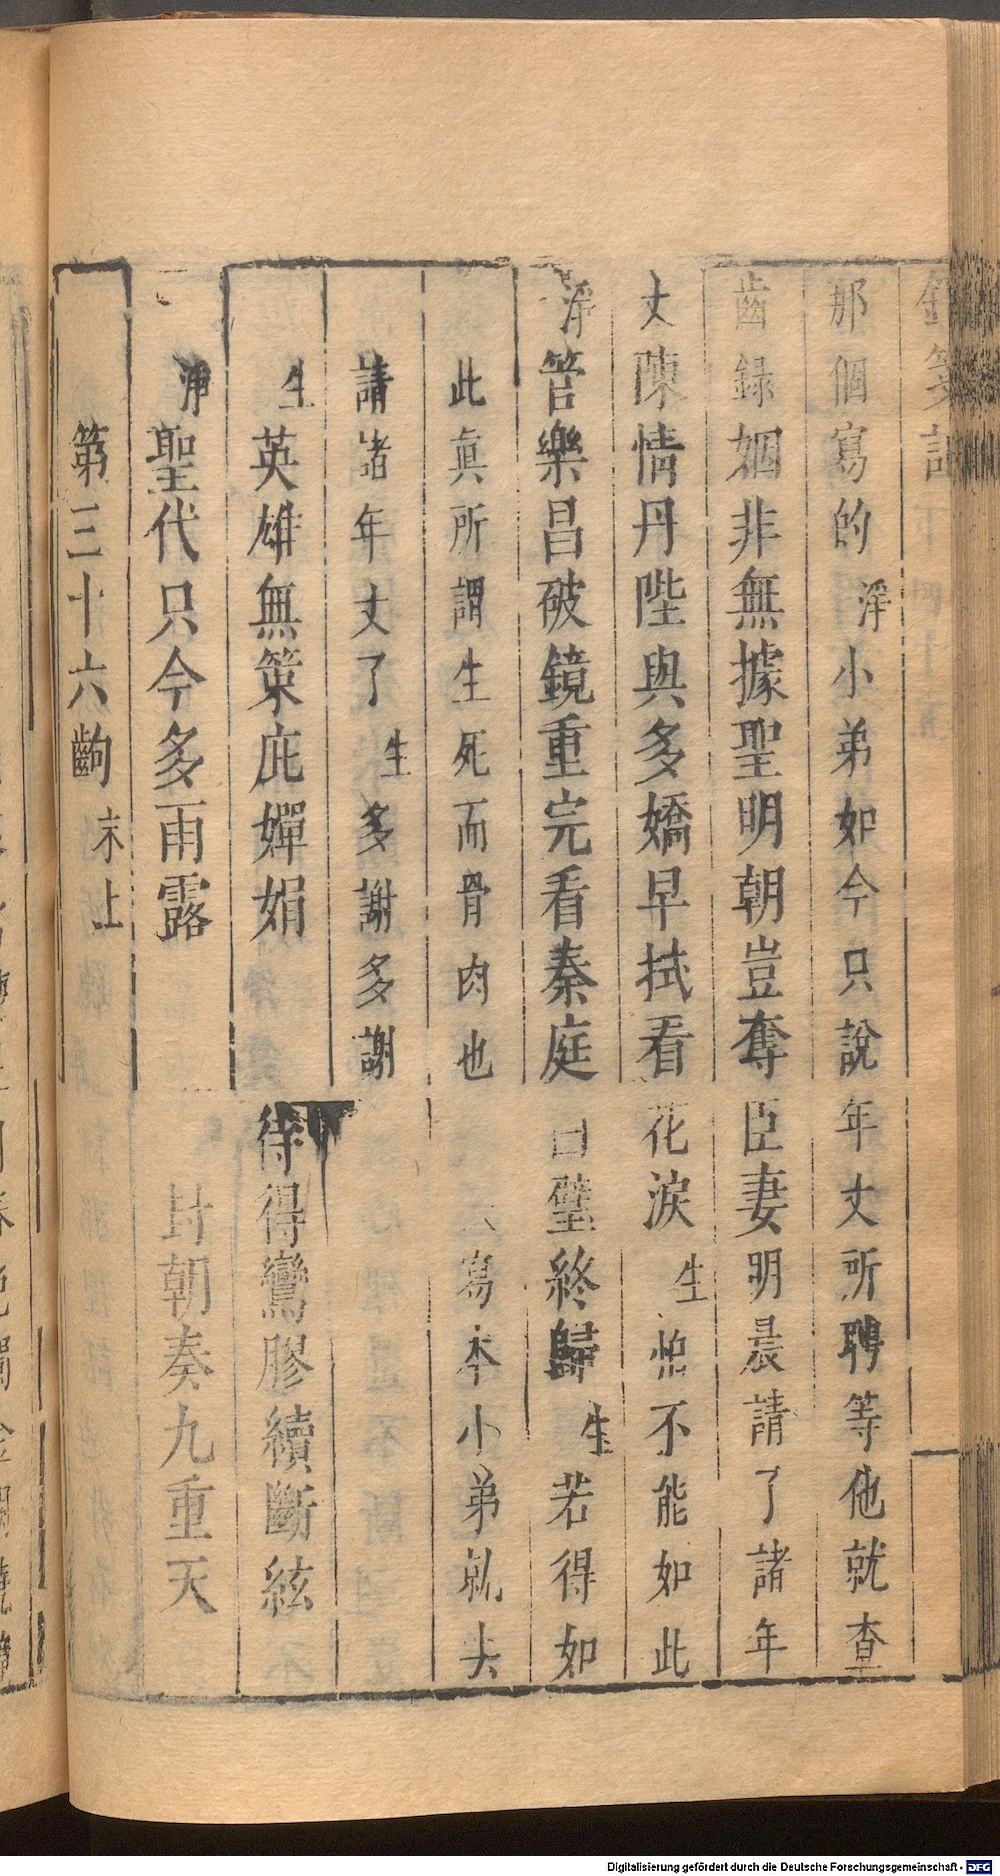 那個寫的淨小弟如今只說年丈所聘等他就查
齒錄姻非無據聖明朝豈奪臣妻明晨請了諸年
丈陳情丹陛與多嬌早拭看花淚生怕不能如此
淨管樂昌破鏡重完看秦庭白璧終歸生若得如
此真所謂生死而骨肉也寫本小弟就去
請諸年丈了生多謝多謝
生英雄無策庇嬋娟待得鸞膠續斷絃
淨聖代只今多雨露封朝奏九重天
第三十六齣末上
Digitalisierung gefördert durch die Deutsche Forschungsgemeinschaft - DFG